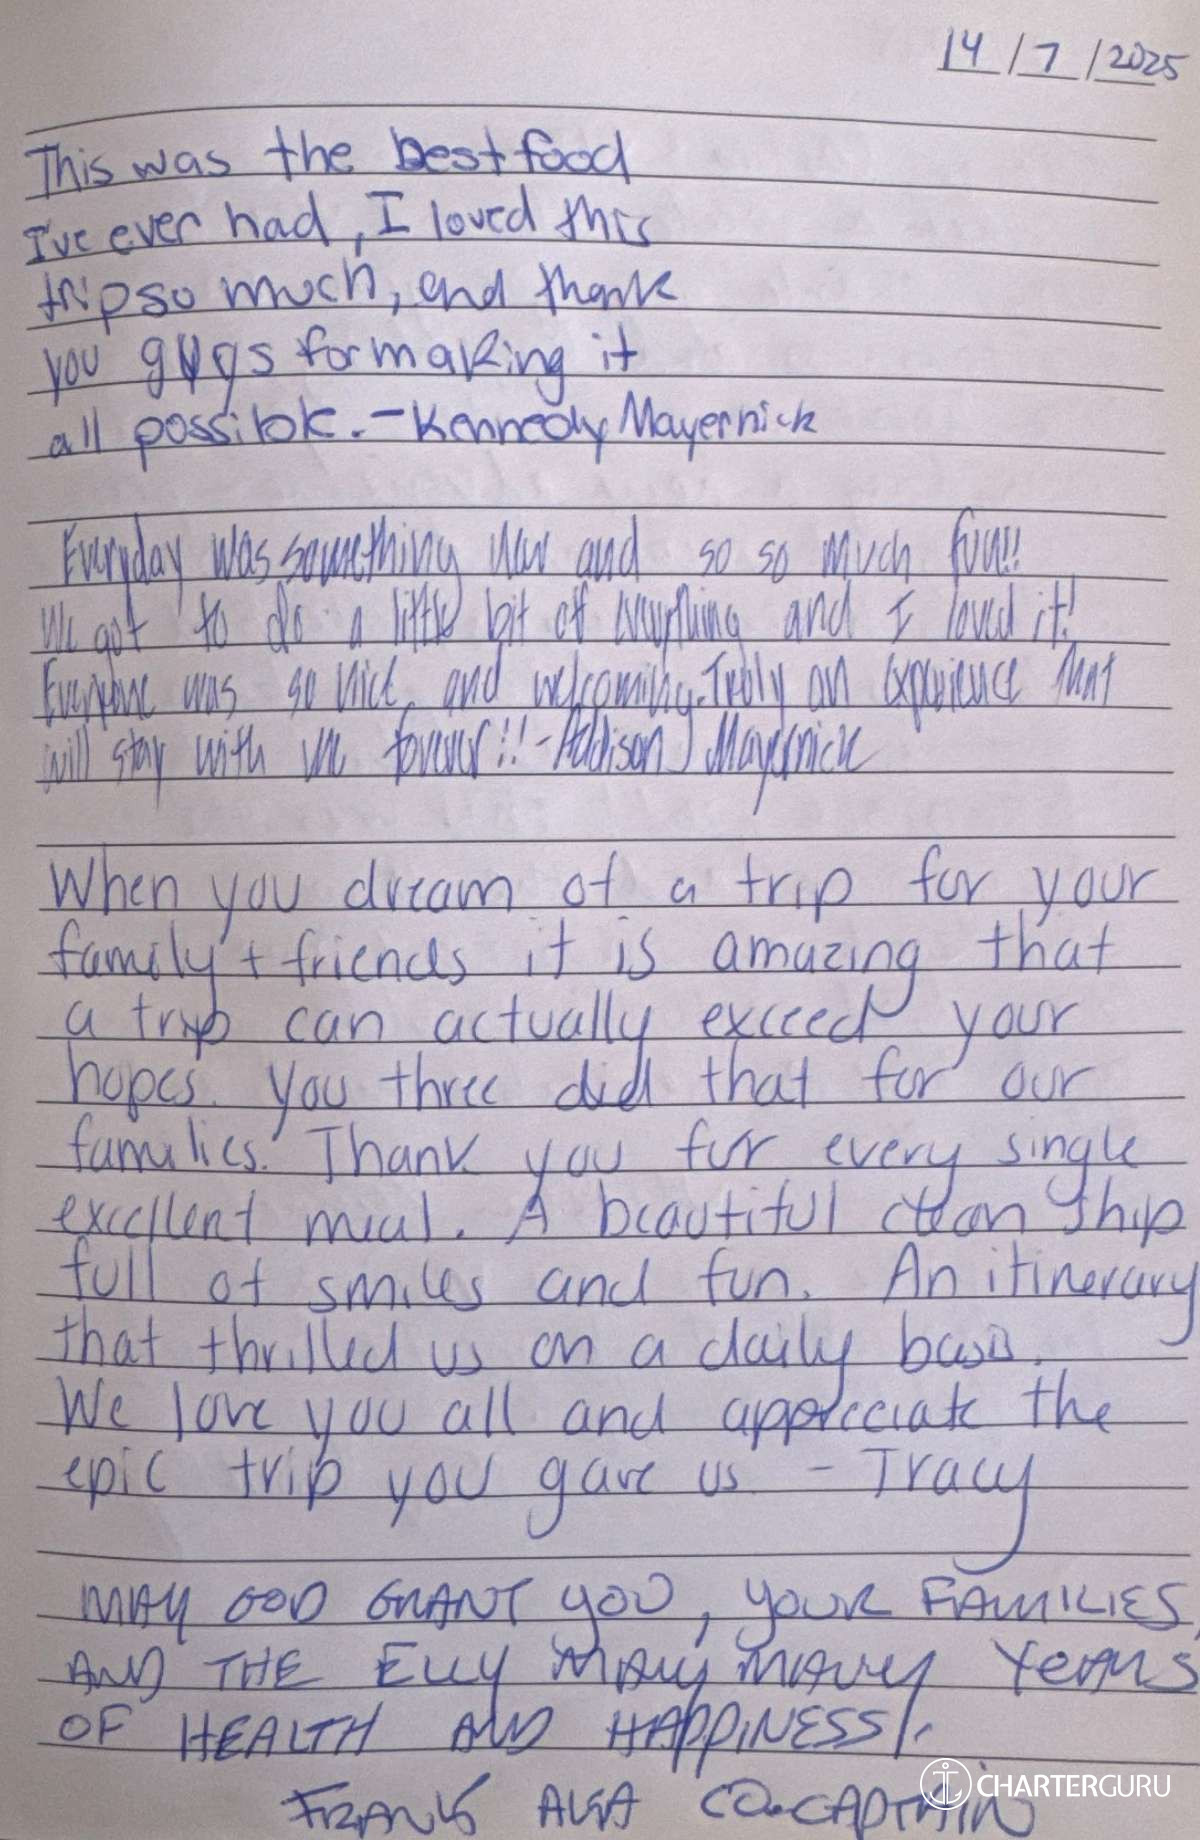 14/7/2025
This was the best food
I've ever had, I loved this
trip so much, and thank
you guys for making it
all possible. - Kennedy Mayernick
Everyday was something new and so so much fun!!
We got to do a little bit of everything and I loved it!
Everyone was so nice, and welcoming. Truly an experience that
will stay with me forever!! - Addison J Mayernick
When you dream of a trip for your
family + friends it is amazing that
a trip can actually exceed your
hopes. You three did that for our
families. Thank you for every single
excellent meal. A beautiful clean ship
full of smiles and fun. An itinerary
that thrilled us on a daily basis.
We love you all and appreciate the
epic trip you gave us - Tracy
MAY GOD GRANT YOU, YOUR FAMILIES,
AND THE ELLY MANY MANY YEARS
OF HEALTH AND HAPPINESS!
FRANK AKA CO-CAPTAIN
CHARTERGURU